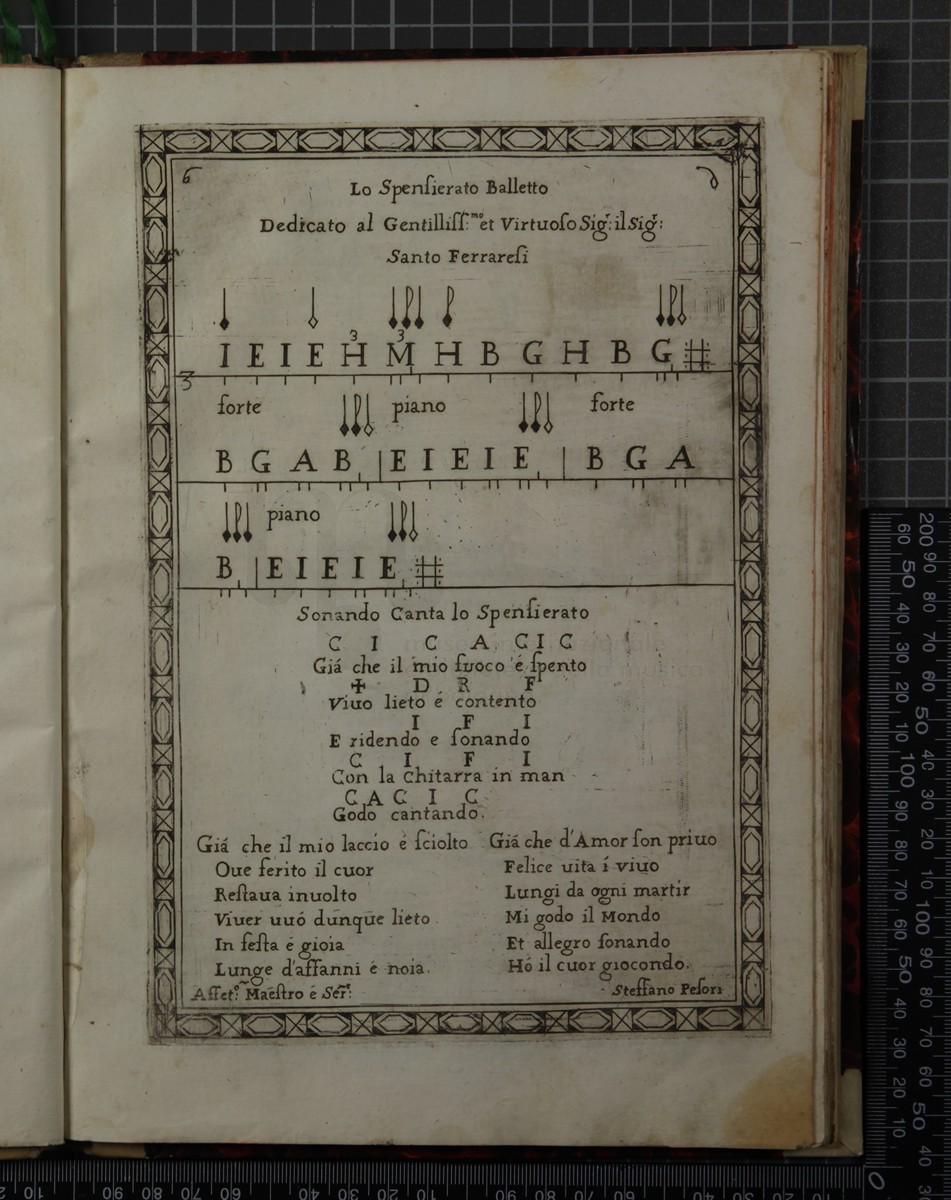 6
Lo Spenſierato Balletto
Dedicato al Gentilliſſ:mo et Virtuoſo Sigr: il Sigr:
Santo Ferrareſi
3 3
I E I E H M H B G H B G
3
forte piano forte
B G A B E I E I E B G A
piano
B E I E I E
Sonando Canta lo Spenſierato
C I C A C I C
Giá che il mio fuoco é ſpento
✠ D R F
Viuo lieto é contento
I F I
E ridendo e ſonando
C I F I
Con la chitarra in man
C A C I C
Godo cantando.
Giá che il mio laccio é ſciolto
Oue ferito il cuor
Reſtaua inuolto
Viuer uuó dunque lieto
In feſta é gioia
Lunge d'affanni é noia.
Giá che d'Amor ſon priuo
Felice uita í viuo
Lungi da ogni martir
Mi godo il Mondo
Et allegro ſonando
Hó il cuor giocondo.
Affeto: Maeſtro é Sert:
Steffano Peſori